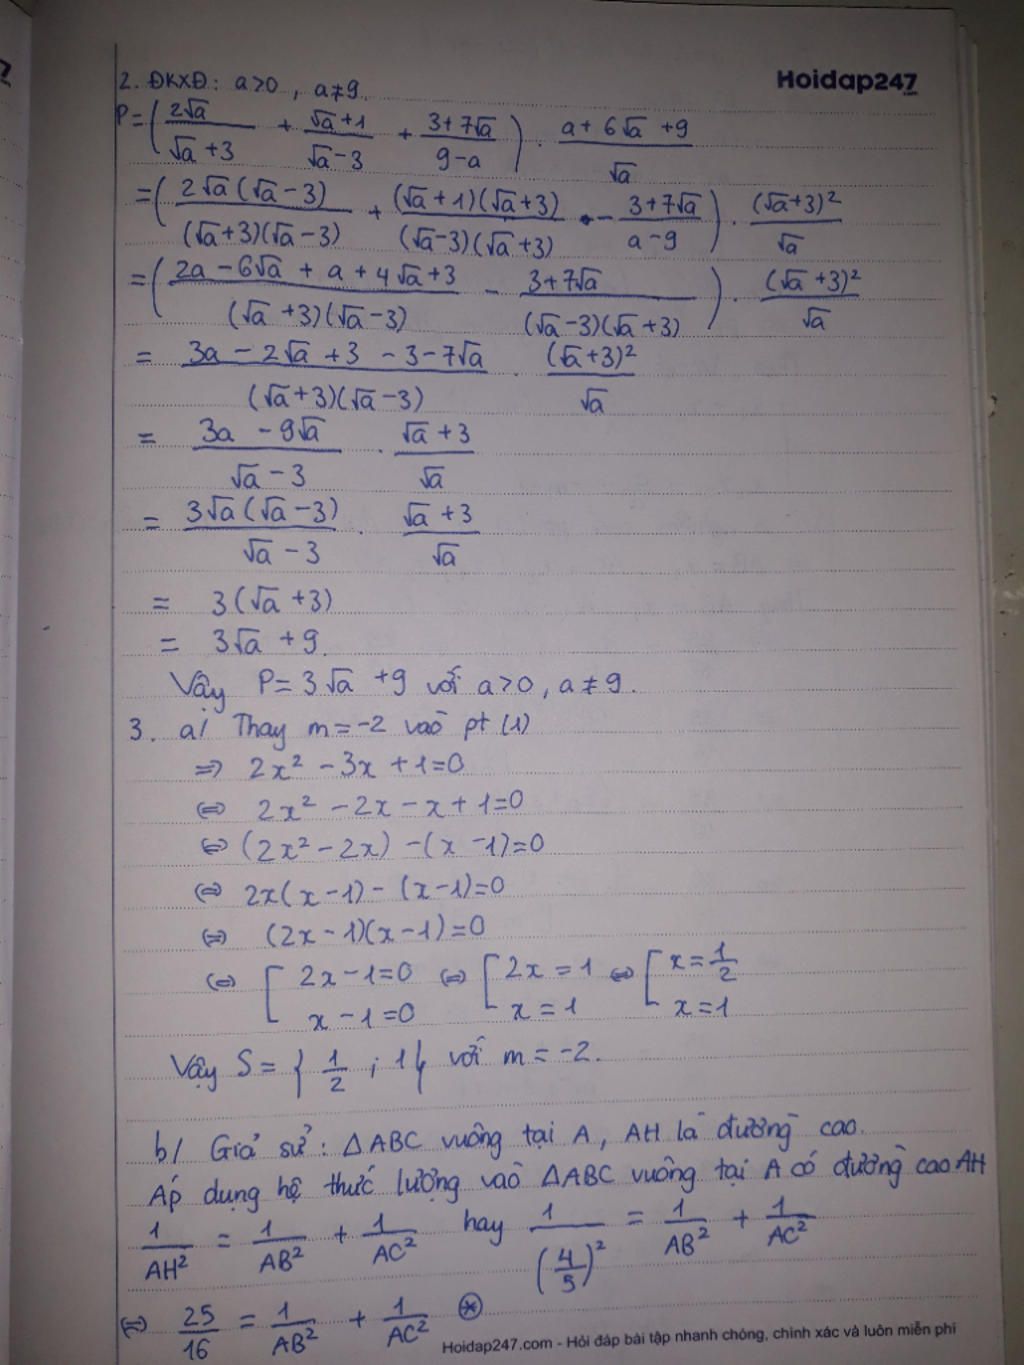 Hoidap247
2. ĐKXĐ: a>0, a≠9.
P=(2√a/(√a+3) + (√a+1)/(√a-3) + (3+7√a)/(9-a)) . (a+6√a+9)/√a
=(2√a(√a-3)/((√a+3)(√a-3)) + (√a+1)(√a+3)/((√a-3)(√a+3)) - (3+7√a)/(a-9)) . (√a+3)²/√a
=((2a-6√a+a+4√a+3)/((√a+3)(√a-3)) - (3+7√a)/((√a-3)(√a+3))) . (√a+3)²/√a
= (3a-2√a+3-3-7√a)/((√a+3)(√a-3)) . (√a+3)²/√a
= (3a-9√a)/(√a-3) . (√a+3)/√a
= 3√a(√a-3)/(√a-3) . (√a+3)/√a
= 3(√a+3)
= 3√a+9.
Vậy P=3√a+9 với a>0, a≠9.
3. a/ Thay m=-2 vào pt (1)
⇒ 2x²-3x+1=0
⇔ 2x²-2x-x+1=0
⇔ (2x²-2x)-(x-1)=0
⇔ 2x(x-1)-(x-1)=0
⇔ (2x-1)(x-1)=0
⇔ [2x-1=0 ⇔ [2x=1 ⇔ [x=1/2
x-1=0 x=1 x=1
Vậy S={1/2; 1} với m=-2.
b/ Giả sử: ΔABC vuông tại A, AH là đường cao.
Áp dụng hệ thức lượng vào ΔABC vuông tại A có đường cao AH
1/AH² = 1/AB² + 1/AC² hay 1/(4/5)² = 1/AB² + 1/AC²
⇔ 25/16 = 1/AB² + 1/AC² ⊛
Hoidap247.com - Hỏi đáp bài tập nhanh chóng, chính xác và luôn miễn phí